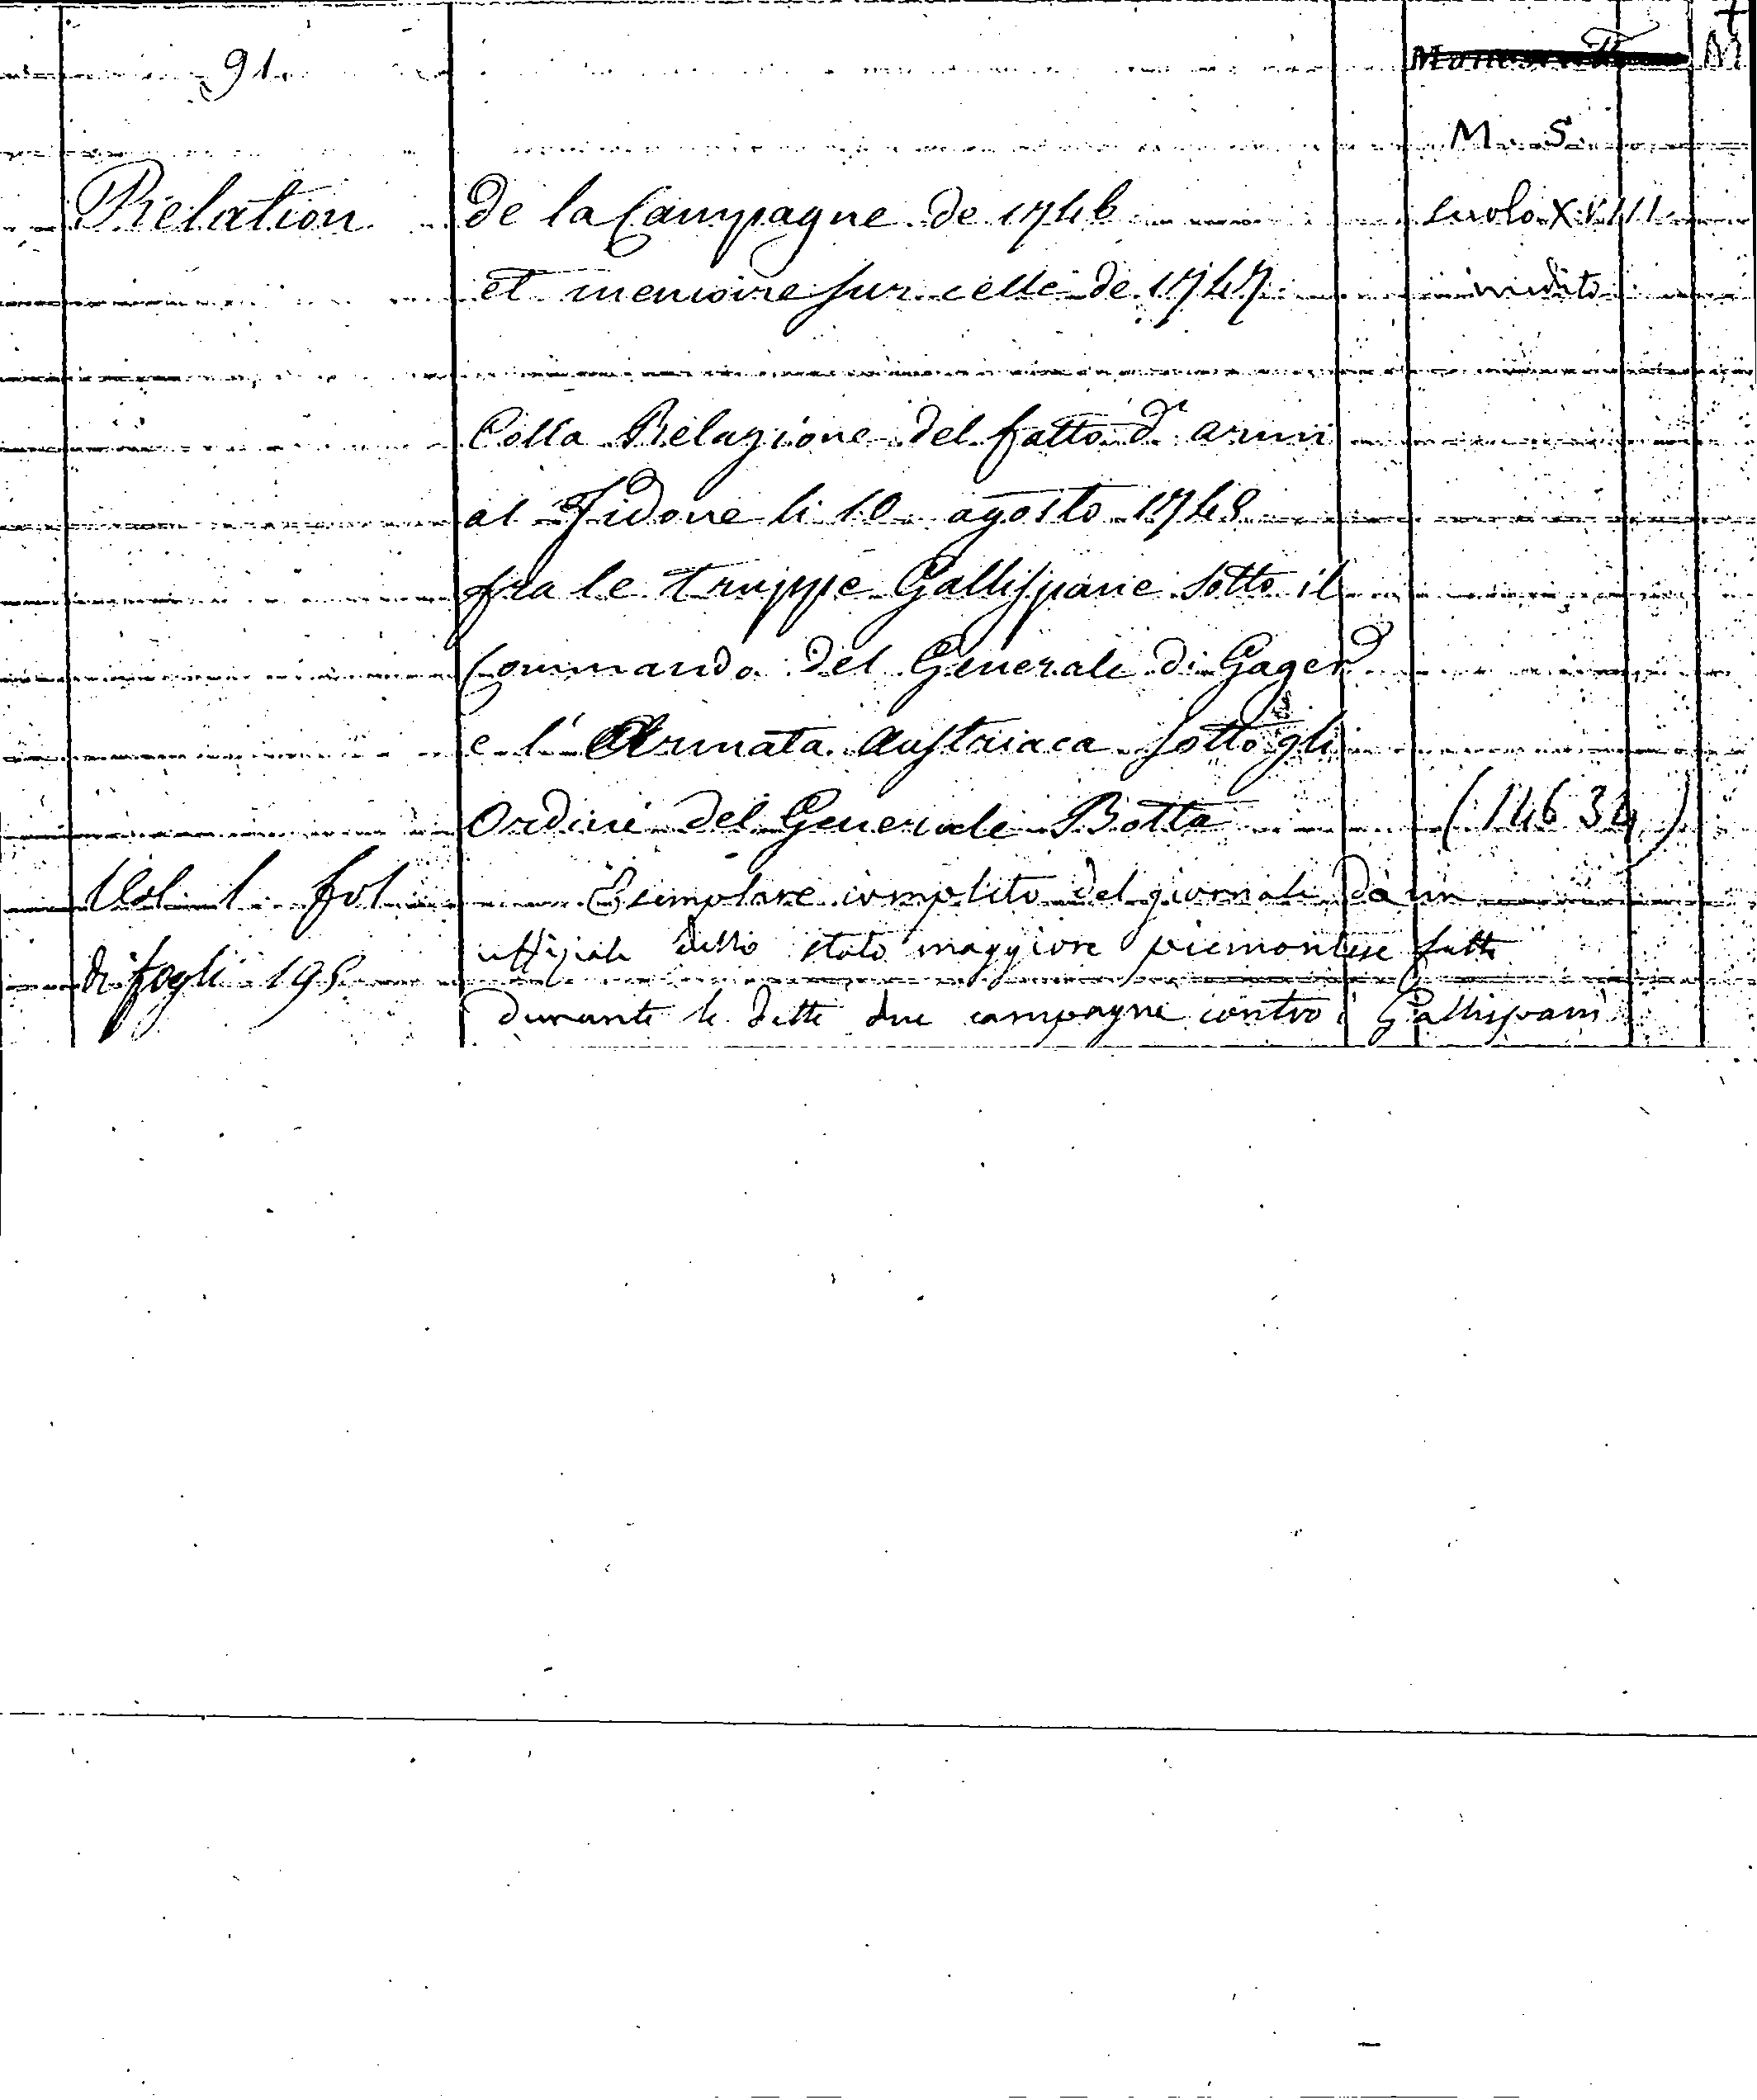 91.
M. S.
Relation de la Campagne de 1746 secolo XVIII
et memoire sur celle de 1747. inedito
Colla Relazione del fatto d'armi
al Tidone li 10. agosto 1748
fra le truppe Gallispane sotto il
Commando del Generale di Gages
e l'Armata Austriaca sotto gli
Ordini del Generale Botta (14634)
Vol. 1. fol. Esemplare completo del giornale da un
uffiziale dello stato maggiore piemontese fatto
di fogli 195
durante le dette due campagne contro i Gallispani